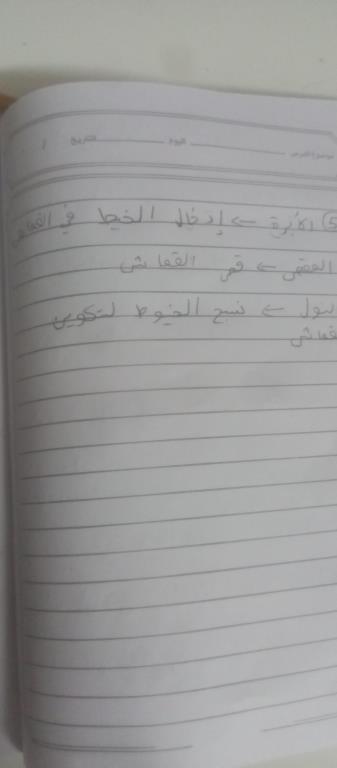 موضوع الدرس اليوم التاريخ /
5) الأبرة ← إدخال الخيط في القماش
المقص ← قص القماش
نول ← نسج الخيوط لتكوين
قماش